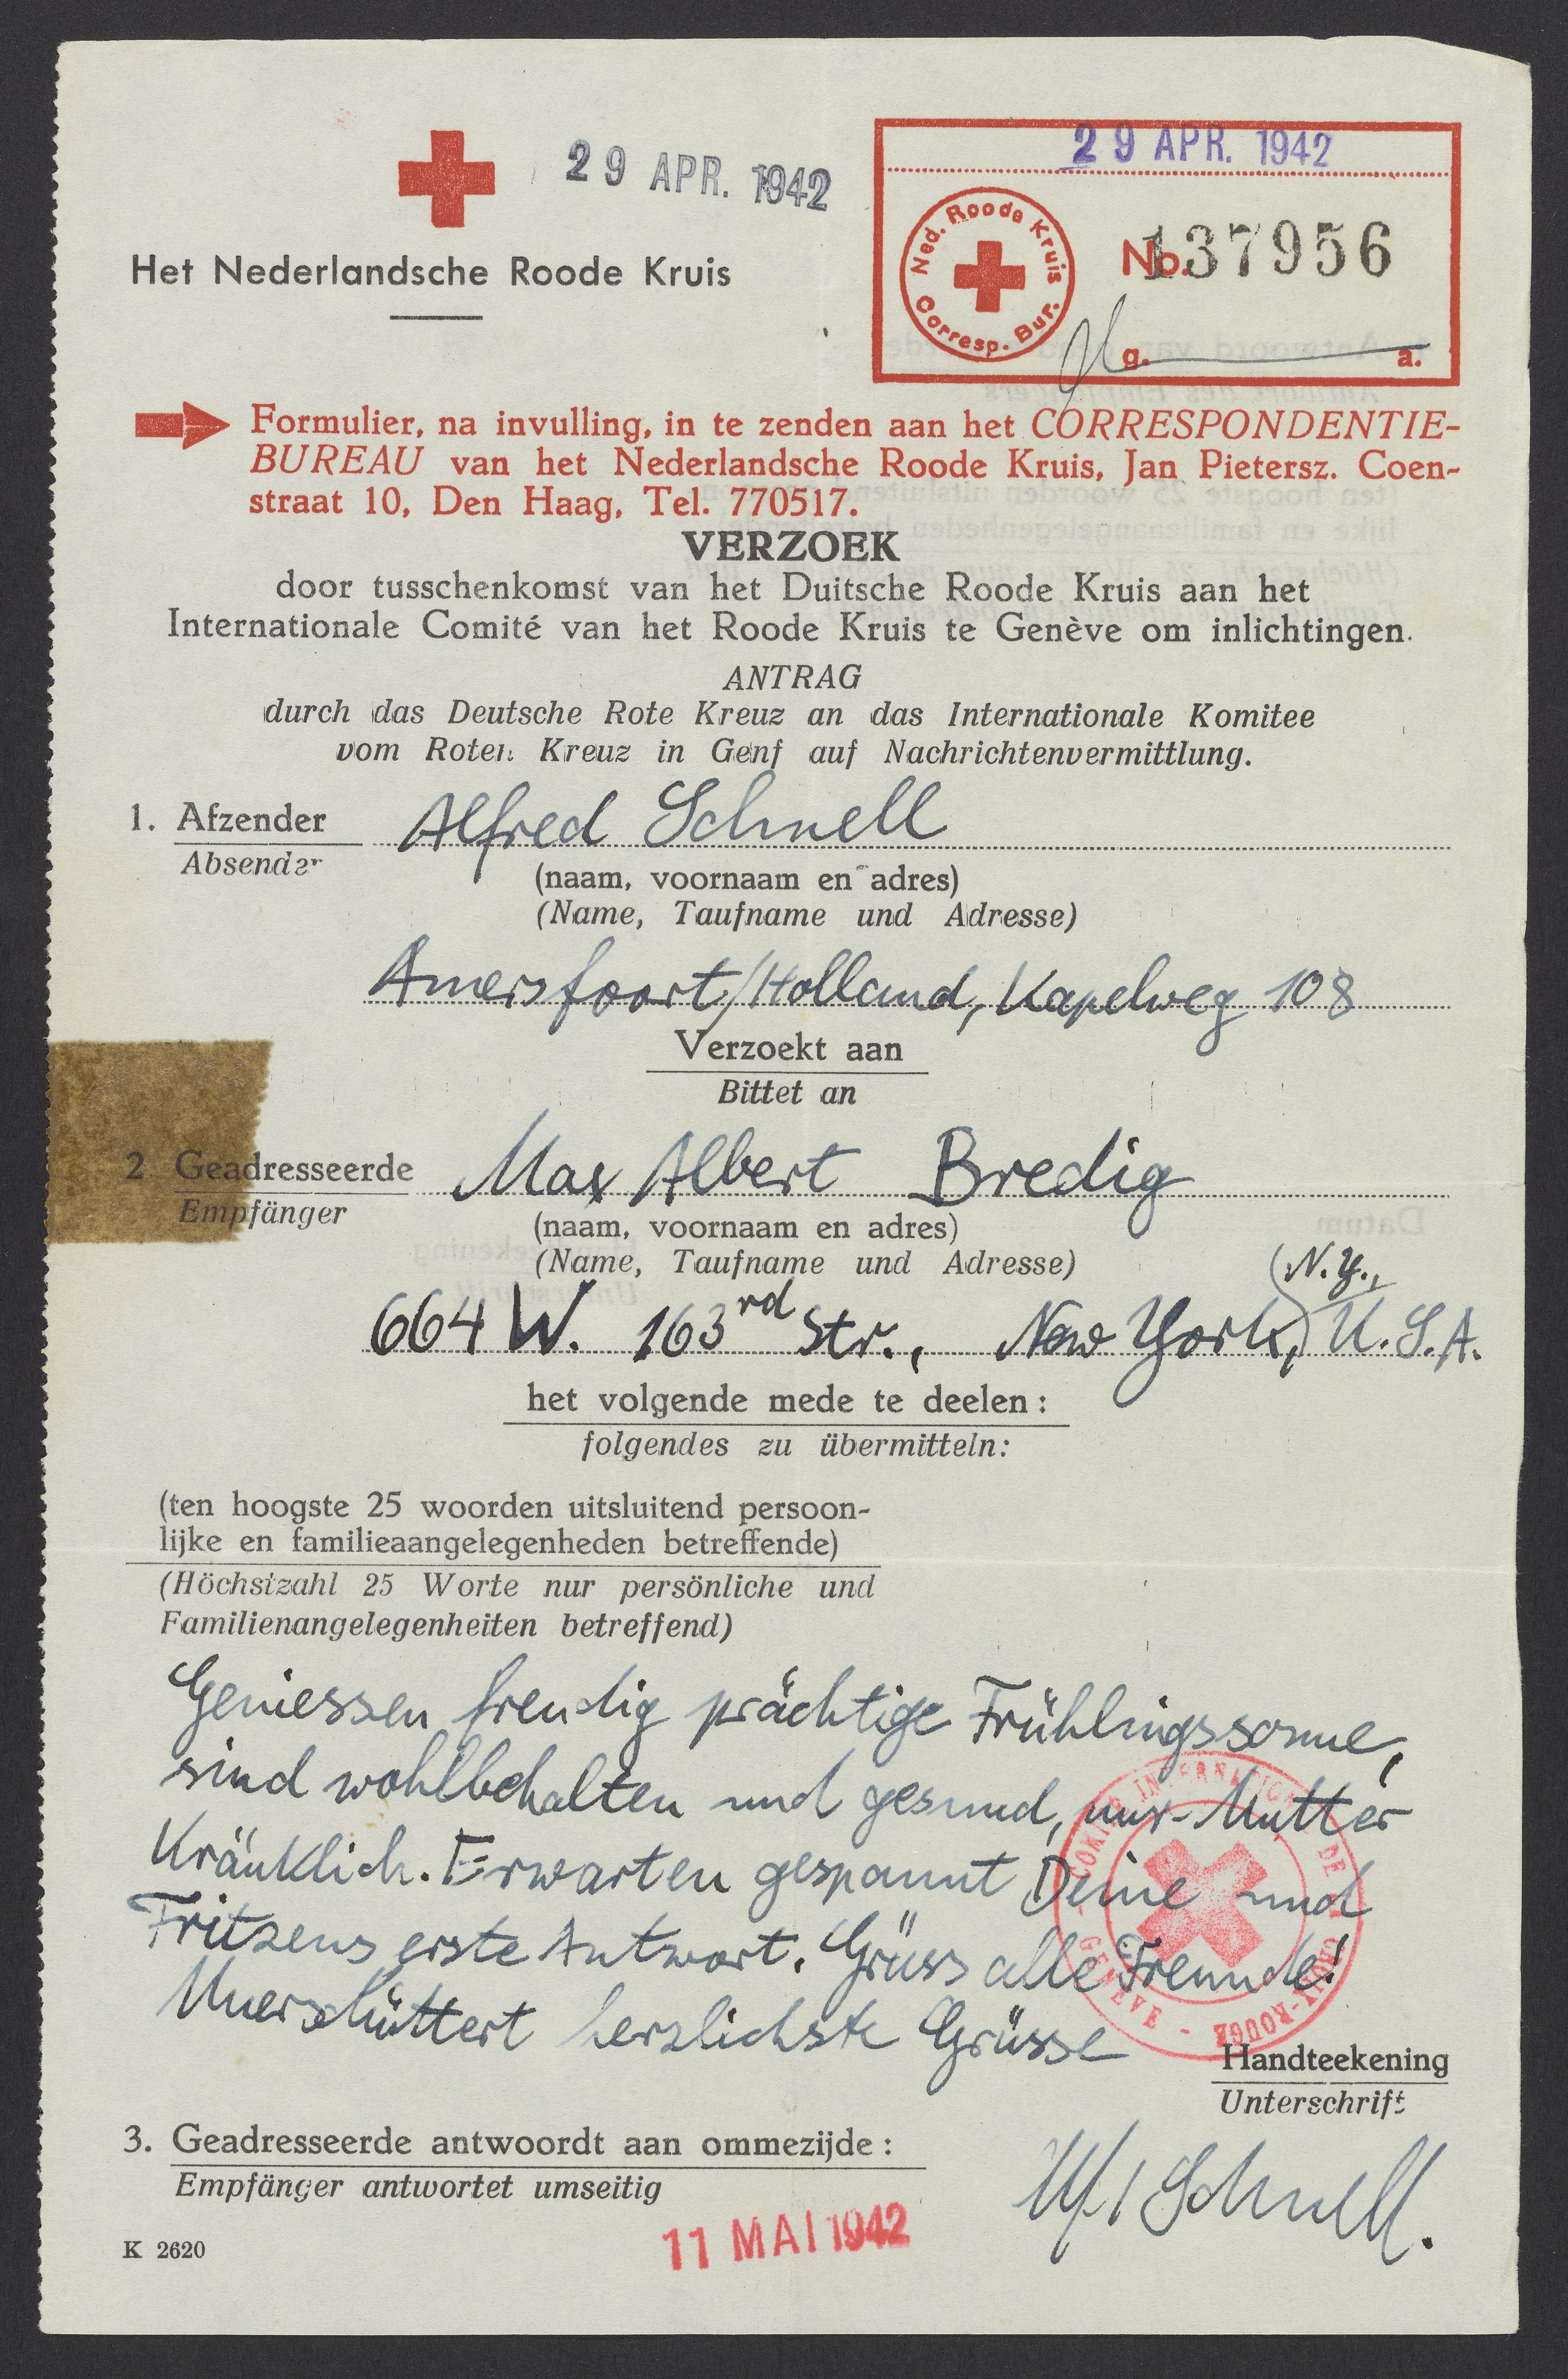 29 APR. 1942
29 APR. 1942
Ned. Roode Kruis
Corresp. Bur.
No. 137956
g. a.
Het Nederlandsche Roode Kruis
Formulier, na invulling, in te zenden aan het CORRESPONDENTIE-
BUREAU van het Nederlandsche Roode Kruis, Jan Pietersz. Coen-
straat 10, Den Haag, Tel. 770517.
VERZOEK
door tusschenkomst van het Duitsche Roode Kruis aan het
Internationale Comité van het Roode Kruis te Genève om inlichtingen.
ANTRAG
durch das Deutsche Rote Kreuz an das Internationale Komitee
vom Roten Kreuz in Genf auf Nachrichtenvermittlung.
1. Afzender Alfred Schnell
Absender
(naam, voornaam en adres)
(Name, Taufname und Adresse)
Amersfoort/Holland, Kapelweg 108
Verzoekt aan
Bittet an
2 Geadresseerde Max Albert Bredig
Empfänger
(naam, voornaam en adres)
(Name, Taufname und Adresse)
(N.Y.,
664 W. 163rd Str., New York,) U.S.A.
het volgende mede te deelen:
folgendes zu übermitteln:
(ten hoogste 25 woorden uitsluitend persoon-
lijke en familieaangelegenheden betreffende)
(Höchstzahl 25 Worte nur persönliche und
Familienangelegenheiten betreffend)
Geniessen freudig prächtige Frühlingssonne,
sind wohlbehalten und gesund, nur Mutter
kränklich. Erwarten gespannt Deine und
Fritzens erste Antwort. Grüss alle Freunde!
Unerschüttert herzlichste Grüsse
COMITÉ INTERNATIONAL DE LA CROIX-ROUGE - GENÈVE -
Handteekening
Unterschrift
3. Geadresseerde antwoordt aan ommezijde:
Empfänger antwortet umseitig
Schnell.
11 MAI 1942
K 2620